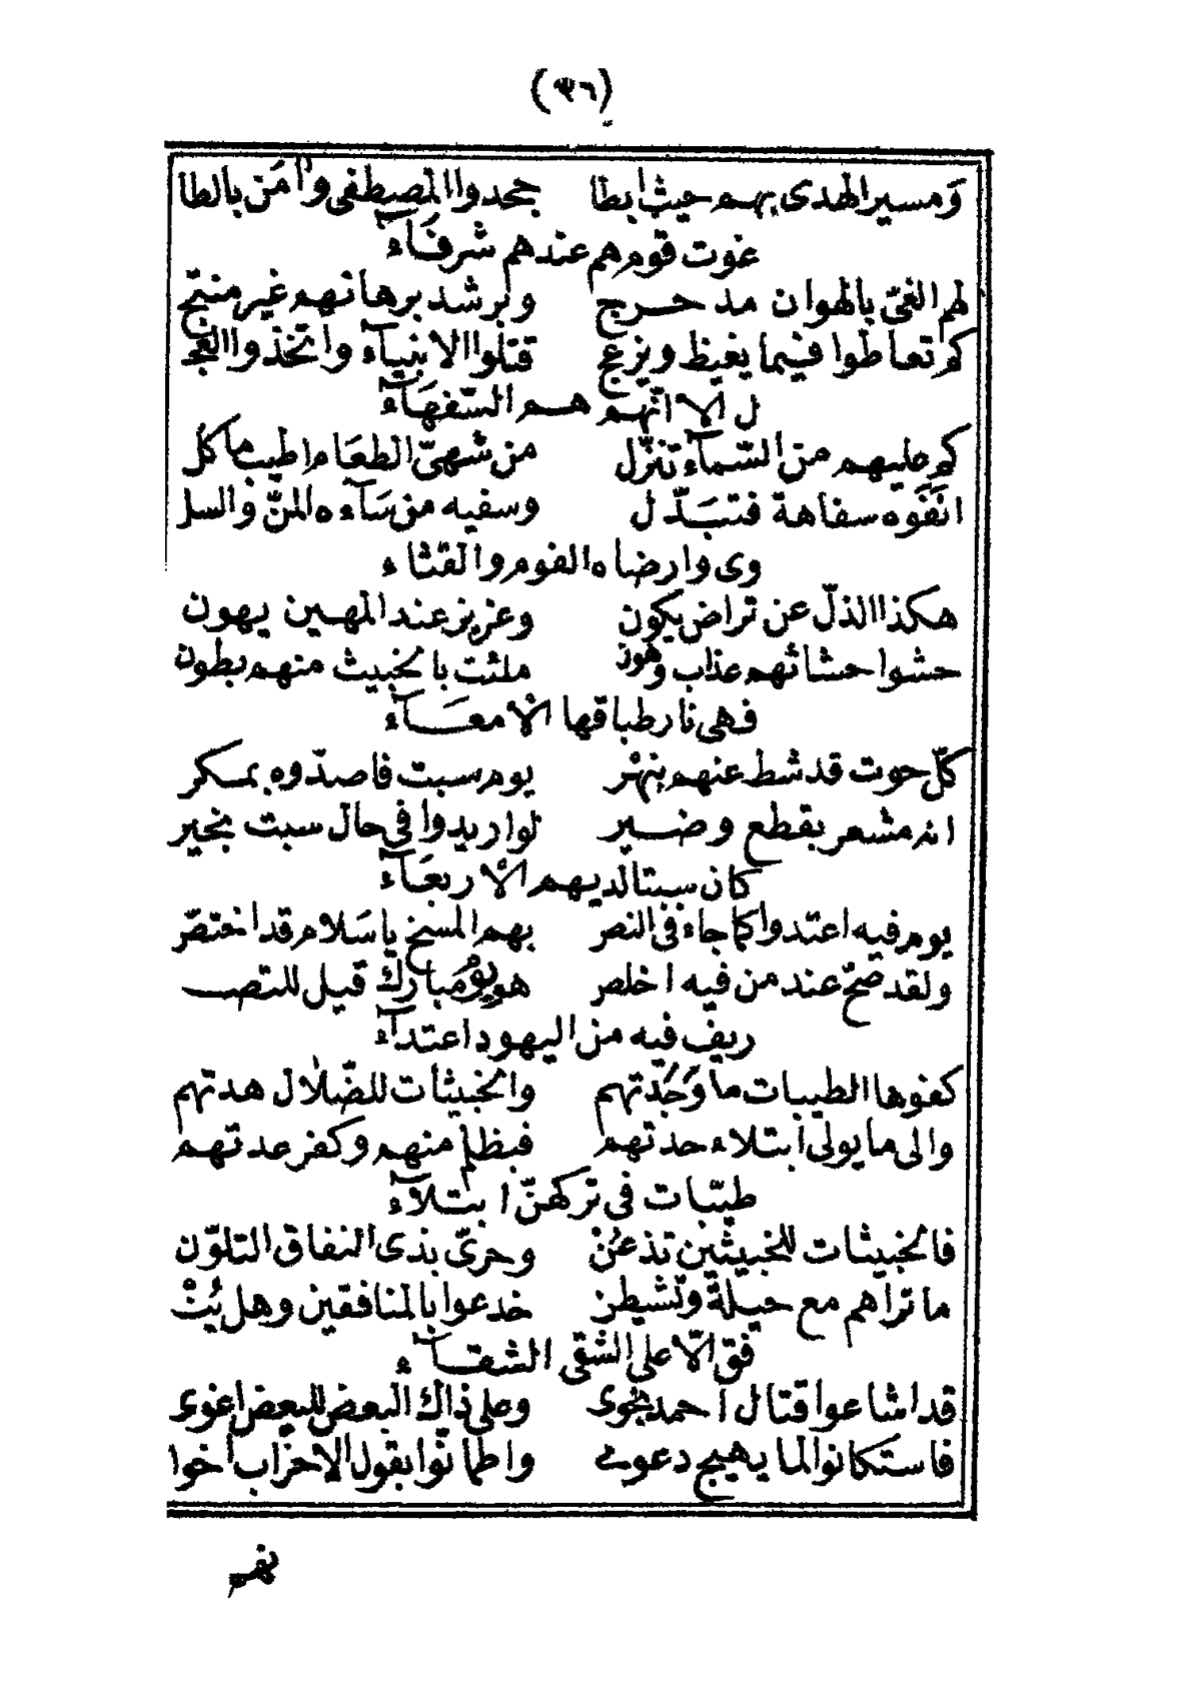 (٣٦)
وَمسير الهدى بهم حيث ابطا جحدوا المصطفى وآمَن بالطا
غوت قوم هم عندهم شرفَآء
لهم الغىّ بالهوان مد حرج ولرشد برهانهم غير منتج
كم تعاطوا فيما يغيظ ويزعج قتلوا الانبيآء واتخذوا العجـ
ل ألا انّهم هم السّفهَآء
كم عليهم من السّمآء تنزّل من شهىّ الطعَام اطيب ماكل
انَفَوه سفاهة فتبَدّل وسفيه من سَآءه المنّ والسلـ
وى وارضاه الفوم والقثاء
هكذا الذلّ عن تراض يكون وعزيز عند المهين يهون
حشوا حشائهم عذاب وهون ملئت بالخبيث منهم بطون
فهى نار طباقها الأمعَآء
كلّ حوت قد شط عنهم بنهْر يوم سبت فاصدّوه بمكر
انه مشعر بقطع وضير لو اريدوا فى حال سبت بخير
كان سبتا لديهم الأربعَآء
يوم فيه اعتدوا كما جاء فى النص بهم المسخ ياسَلام قد اختصّ
ولقد صحّ عند من فيه اخلص هو يومٌ مبارك قيل للتصـ
ريف فيه من اليهود اعتدآء
كفوها الطيبات ما وَجَدّتهم والخبيثات للضّلال هدتهم
والى ما يولى ابتلاء حدتهم فبظلم منهم وكفر عدتهم
طيّبات فى تركهنّ ابتلآء
فالخبيثات للخبيثين تذعنْ وحرىّ بذى النفاق التلوّن
ما تراهم مع حيلة وتشيطن خدعوا بالمنافقين وهل يُنْـ
فق الّا على الشقى الشقآء
قد اشاعوا قتال أحمد نجوى وعلى ذاك البعض للبعض اغوى
فاستكانوا لما يهيج دعوى واطمأنّوا بقول الاحزاب اخوا
نهم